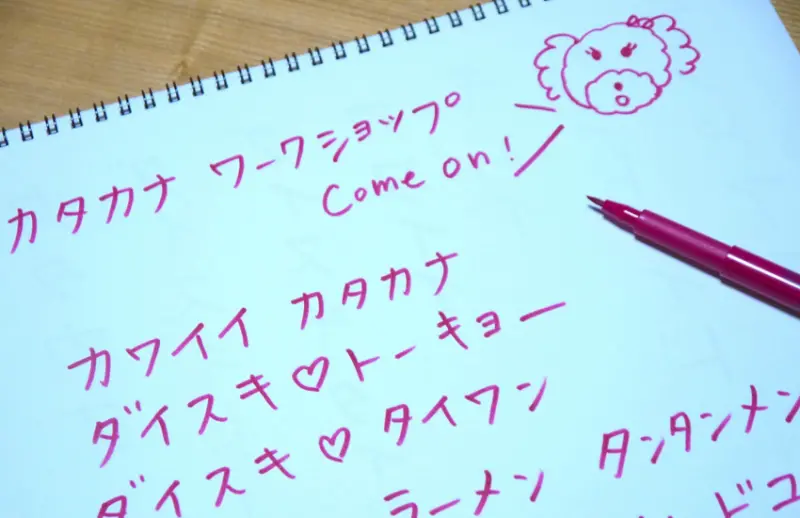 カタカナ ワークショップ
Come on!
カワイイ カタカナ
ダイスキ♡トーキョー
ダイスキ♡タイワン
ラーメン タンタンメン